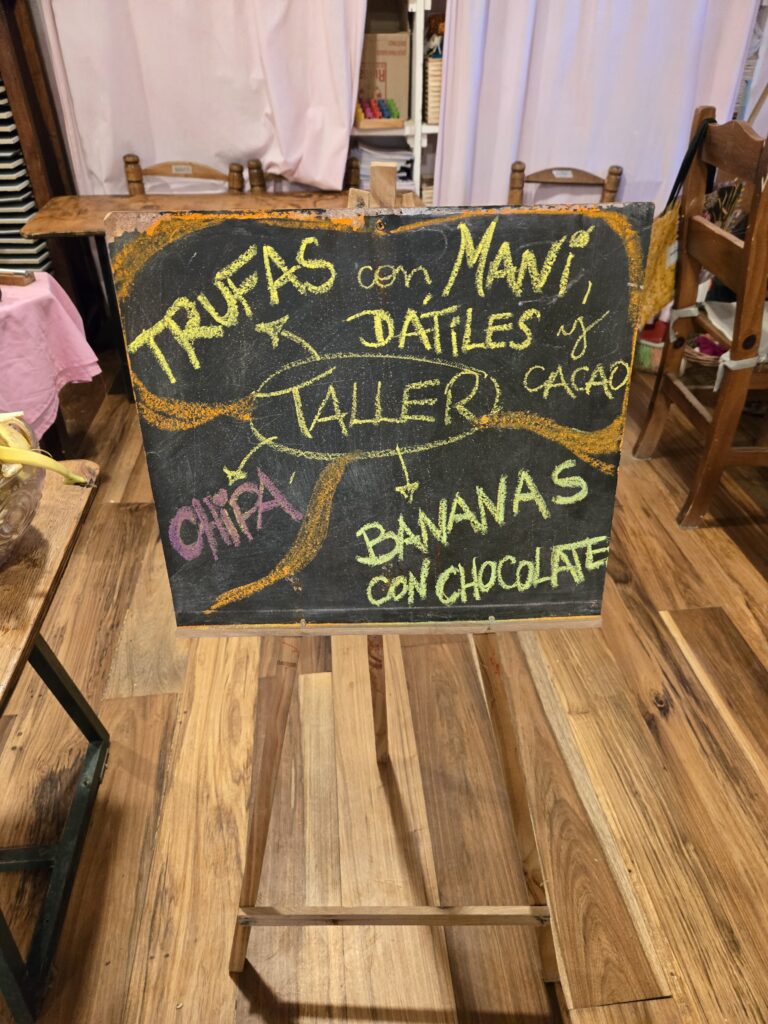 TRUFAS con MANí,
DÁTiLES y
CACAO
TALLER
CHiPÁ
BANANAS
CON CHOCOLATE